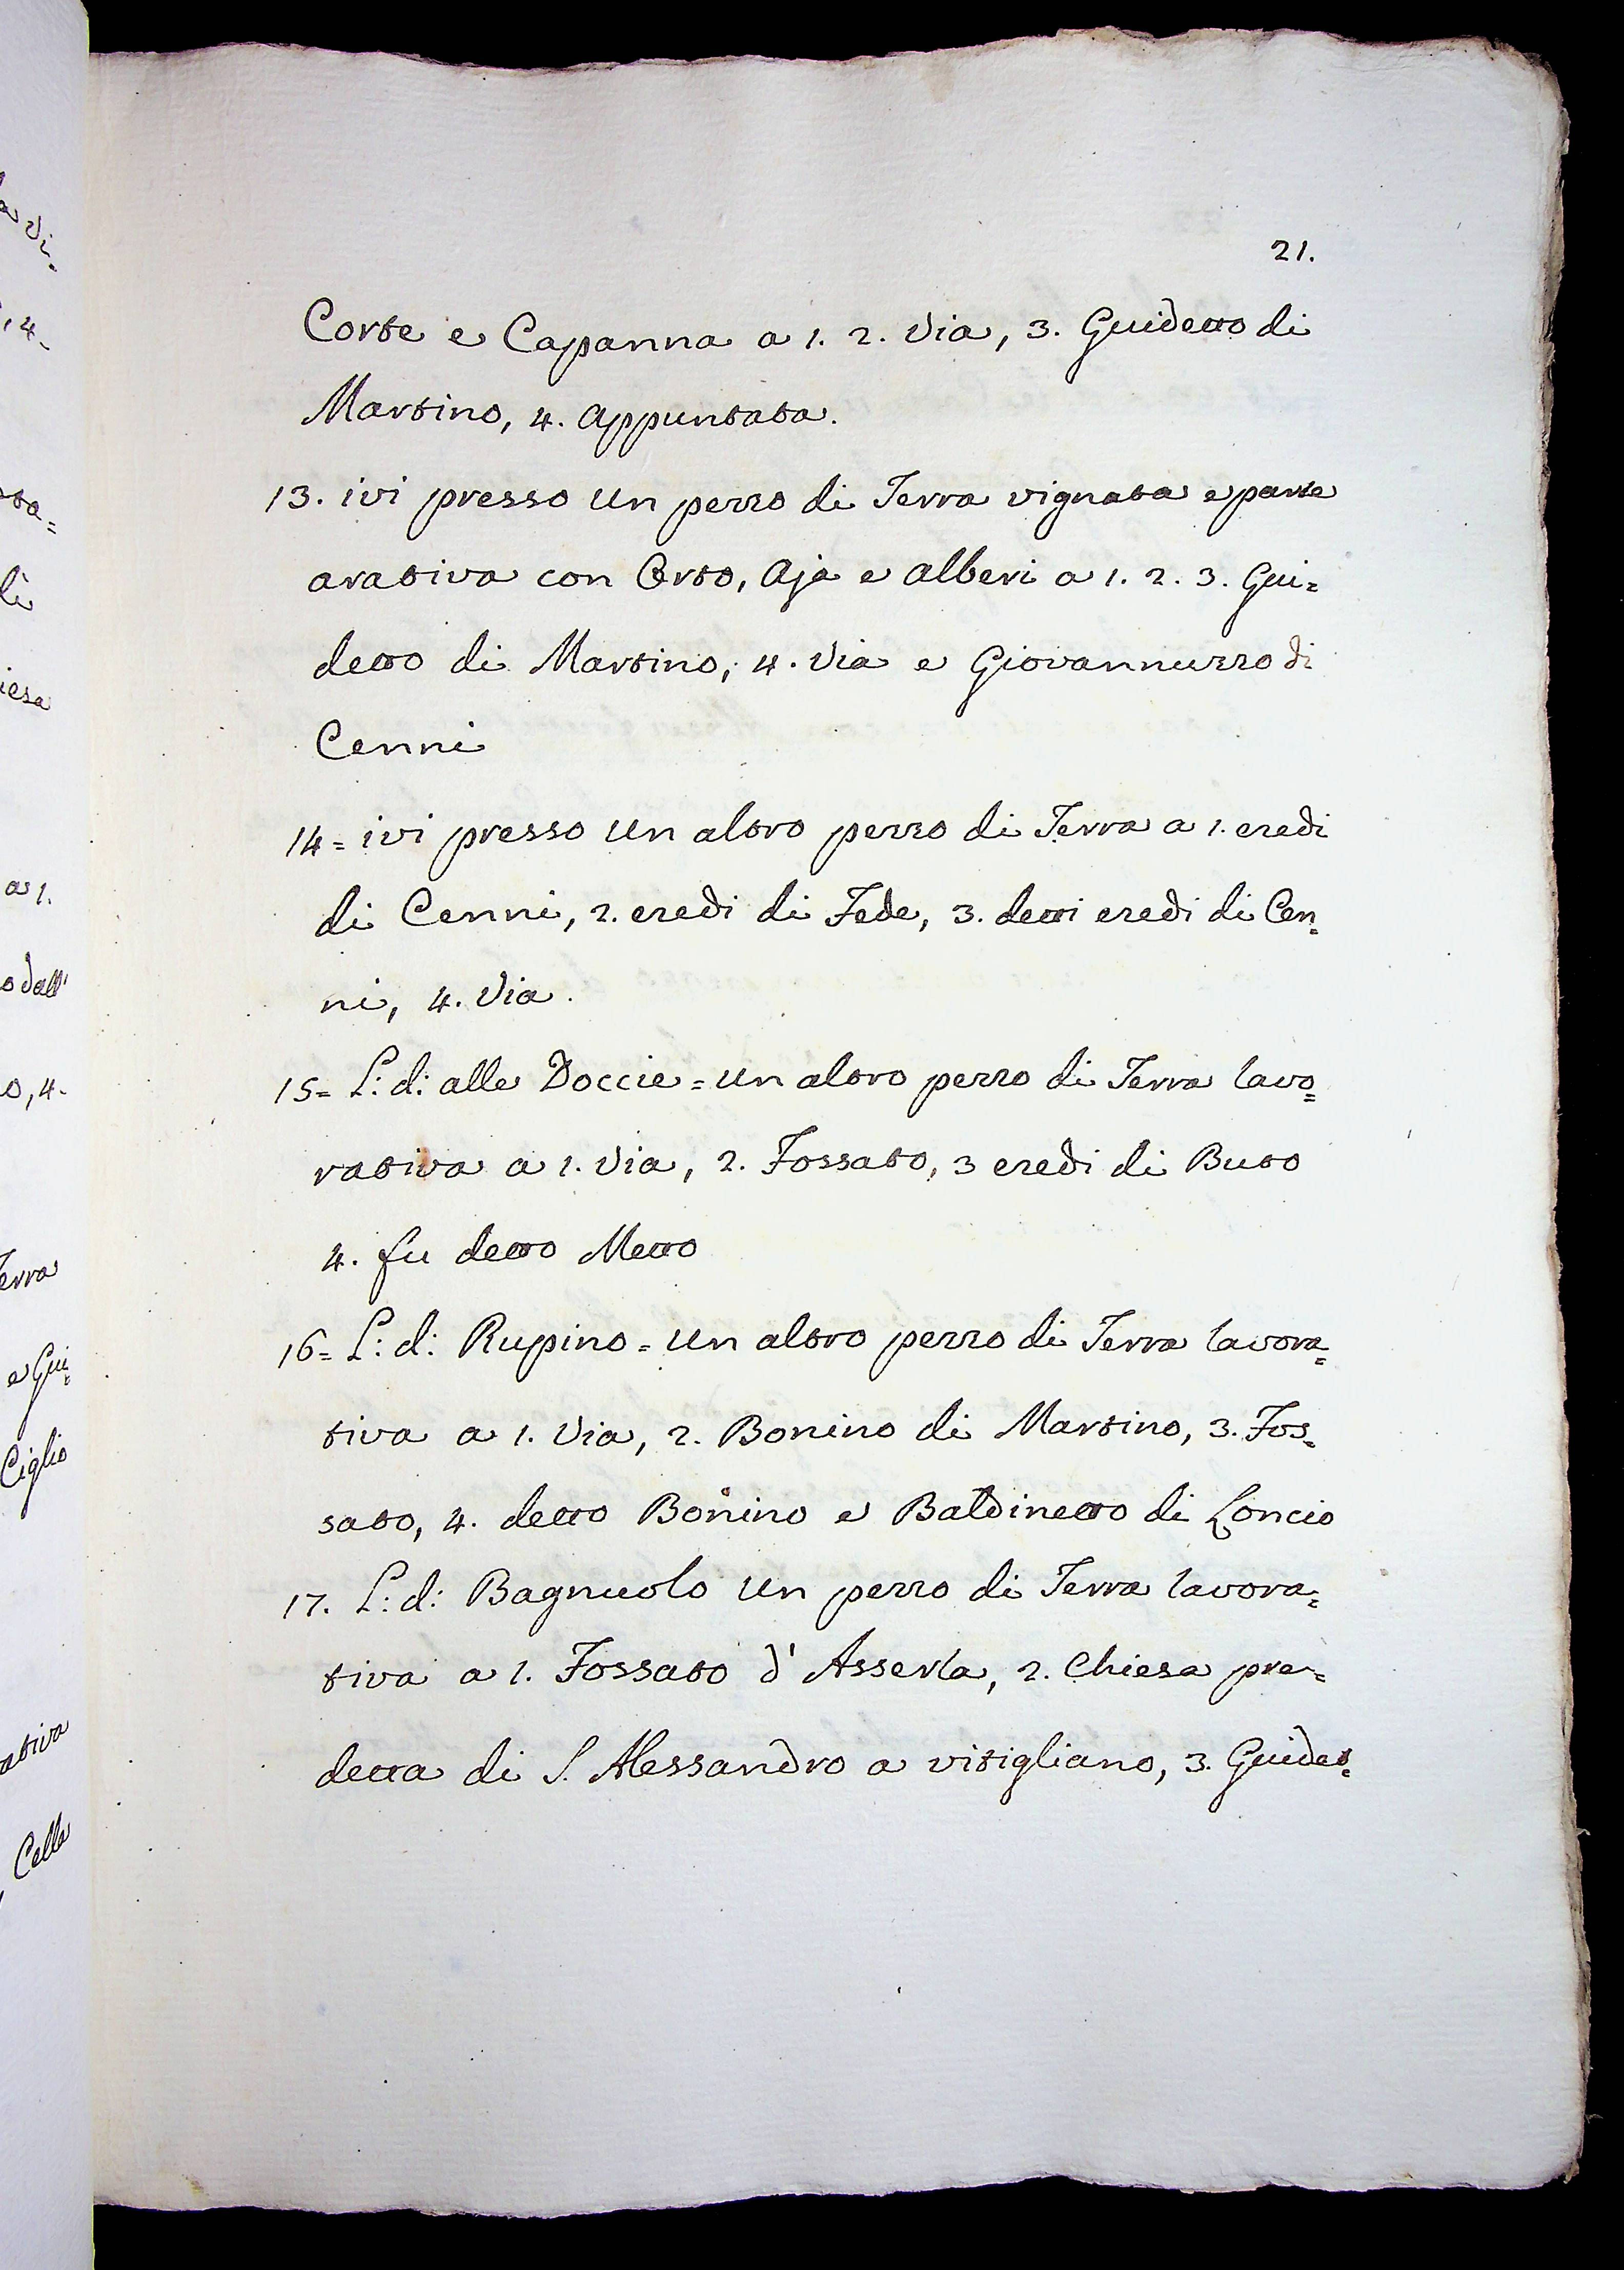 21.
Corte e Capanna a 1. 2. Via, 3. Guidetto di
Martino, 4. Appuntata.
13. ivi presso un pezzo di Terra vignata e parte
arativa con Orto, Aja e alberi a 1. 2. 3. Gui=
detto di Martino, 4. Via e Giovannuzzo di
Cenni
14= ivi presso un altro pezzo di Terra a 1. eredi
di Cenni, 2. eredi di Fede, 3. detti eredi di Cen=
ni, 4. Via.
15= L: d: alle Doccie = un altro pezzo di Terra lavo=
rativa a 1. Via, 2. Fossato, 3 eredi di Buto
4. fu detto Metto
16= L: d: Rupino = un altro pezzo di Terra lavora=
tiva a 1. Via, 2. Bonino di Martino, 3. Fos=
sato, 4. detto Bonino e Baldinetto di Loncio
17. L: d: Bagnuolo un pezzo di Terra lavora=
tiva a 1. Fossato d' Asserta, 2. Chiesa pre=
detta di S. Alessandro a vitigliano, 3. Guidet=
a Vi=
, 4.
ta=
di
iesa
a 1.
o dall'
o, 4.
Terra
e Gui=
Ciglio
ativa
Cella